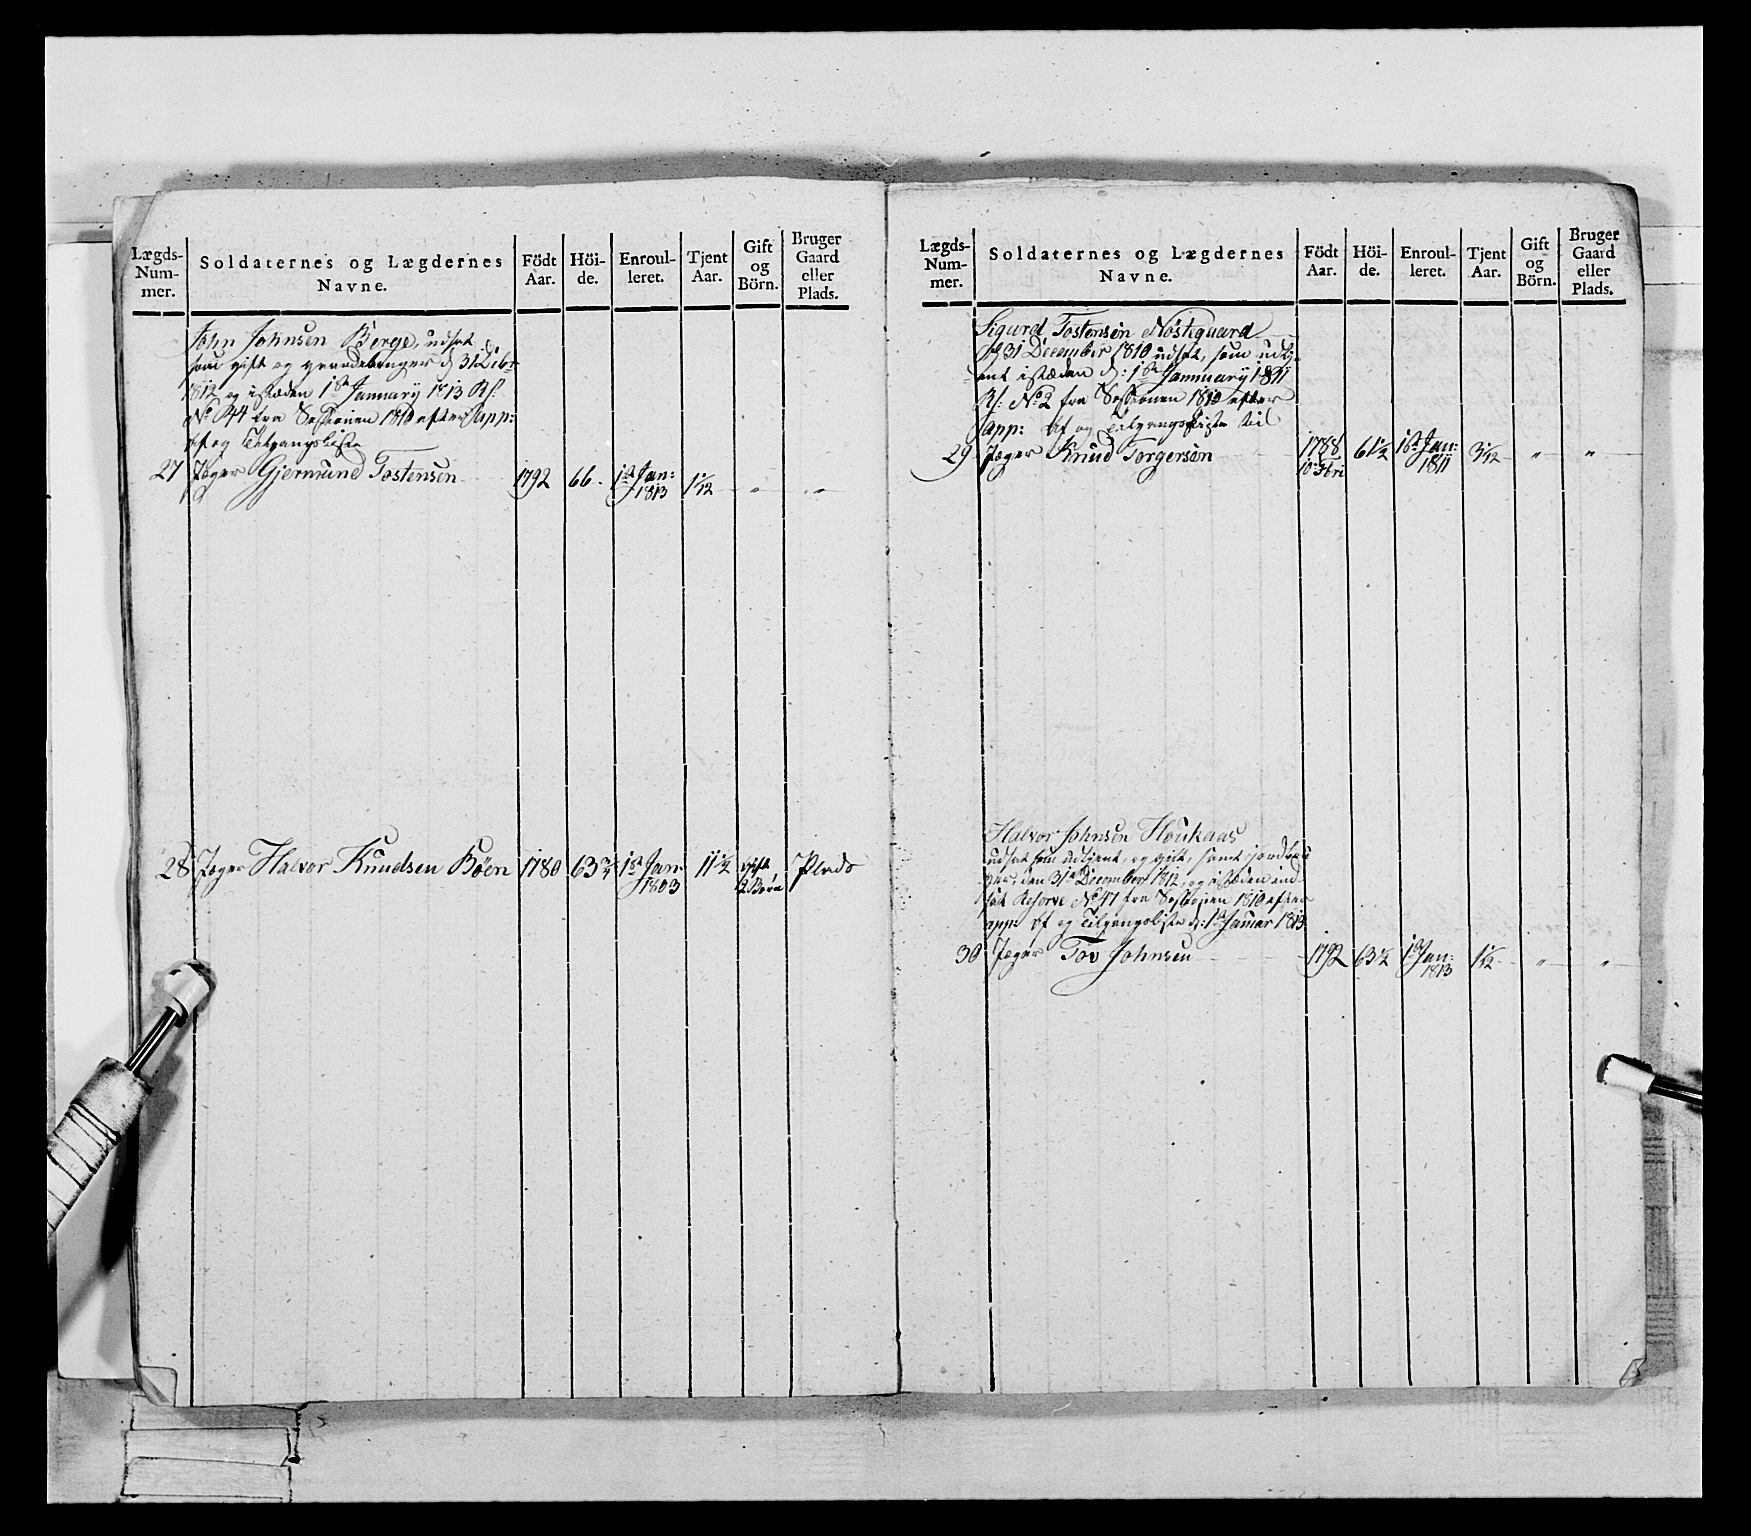 Lægds-
Num-
mer.
Soldaternes og Lægdernes
Navne.
Födt
Aar.
Höi-
de.
Enroul-
leret.
Tjent
Aar.
Gift
og
Börn.
Bruger
Gaard
eller
Plads.
John Johnsen Berge, udsat
som gift og gaardebruger d 31 Decbr
1812 og istæden 1ste Januarÿ 1813 Rs:
No 44 fra Sessionen 1810 efter App:
Af og Tilgangsliste
27 Jæger Gjermund Tostensen 1792 66 - 1ste Jan: 1813 1 1/12 " "
28 Jæger Halvor Knudsen Böen 1780 63 3/4 1ste Jan: 1803 11 1/2 gift 2 Börn Plads
Lægds-
Num-
mer.
Soldaternes og Lægdernes
Navne.
Födt
Aar.
Höi-
de.
Enroul-
leret.
Tjent
Aar.
Gift
og
Börn.
Bruger
Gaard
eller
Plads.
Sigurd Tostensen Nöstegaard
d 31 December 1810 udsat, som udtj-
ent istæden d: 1ste Januarÿ 1811
Rs: No 2 fra Sessionen 1810 efter
App: Af og Tilgangsliste til
29 Jæger Knud Torgersen 1788 10 3bri 61 1/2 1ste Jan: 1811 3 1/12 " "
Halvor Johnsen Houkaas
udsat som udtjent, og gift, samt jordbru-
ger, den 31te December 1812, og istæden ind-
sat Reserve No 47 fra Sessionen 1810 efter
app: Af og Tilgangsliste d: 1ste Januar 1813
30 Jæger Tov Johnsen 1792 63 1/2 1ste Jan: 1813 1 1/12 " "